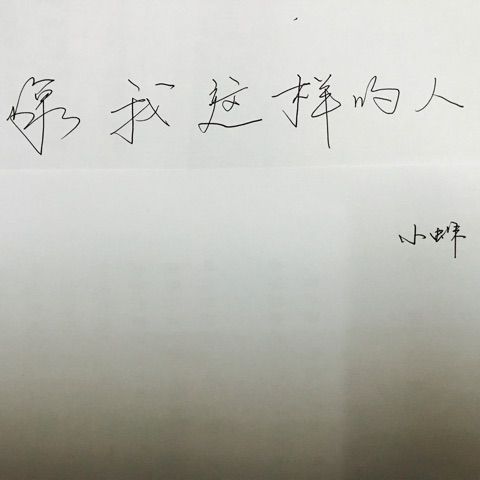 像我这样的人
小蛛